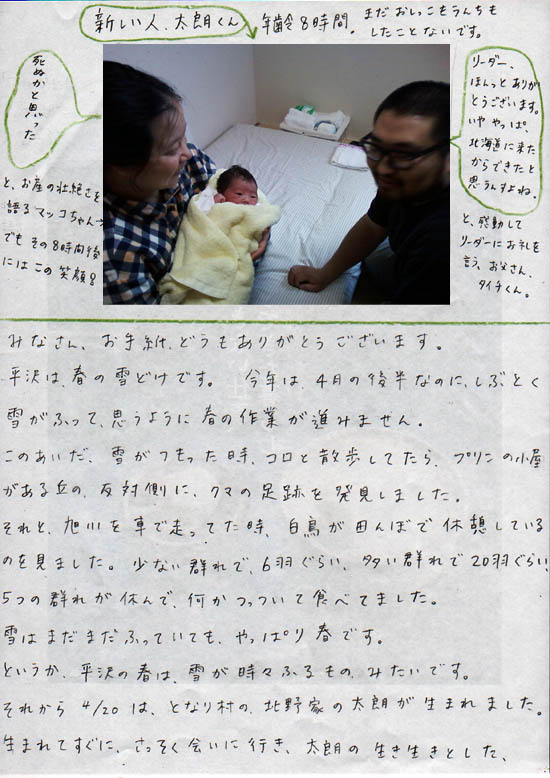 新しい人、太朗くん
年齢8時間。まだおしっこもうんちも
したことないです。
死ぬかと思った
と、お産の壮絶さを
語るマッコちゃん
でもその8時間後
にはこの笑顔!
リーダー、
ほんっとありが
とうございます。
いややっぱ、
北海道に来た
からできたと
思うんすよね。
と、感動して
リーダーにお礼を
言う、お父さん、
タイチくん。
みなさん、お手紙、どうもありがとうございます。
平沢は、春の雪どけです。 今年は、4月の後半なのに、しぶとく
雪がふって、思うように春の作業が進みません。
このあいだ、雪がつもった時、コロと散歩してたら、プリンの小屋
がある丘の、反対側に、クマの足跡を発見しました。
それと、旭川を車で走ってた時、白鳥が田んぼで休憩している
のを見ました。少ない群れで、6羽ぐらい、多い群れで20羽ぐらい、
5つの群れが休んで、何かつっついて食べてました。
雪はまだまだふっていても、やっぱり春です。
というか、平沢の春は、雪が時々ふるもの、みたいです。
それから 4/20は、となり村の、北野家の太朗が生まれました。
生まれてすぐに、さっそく会いに行き、太朗の生き生きとした、